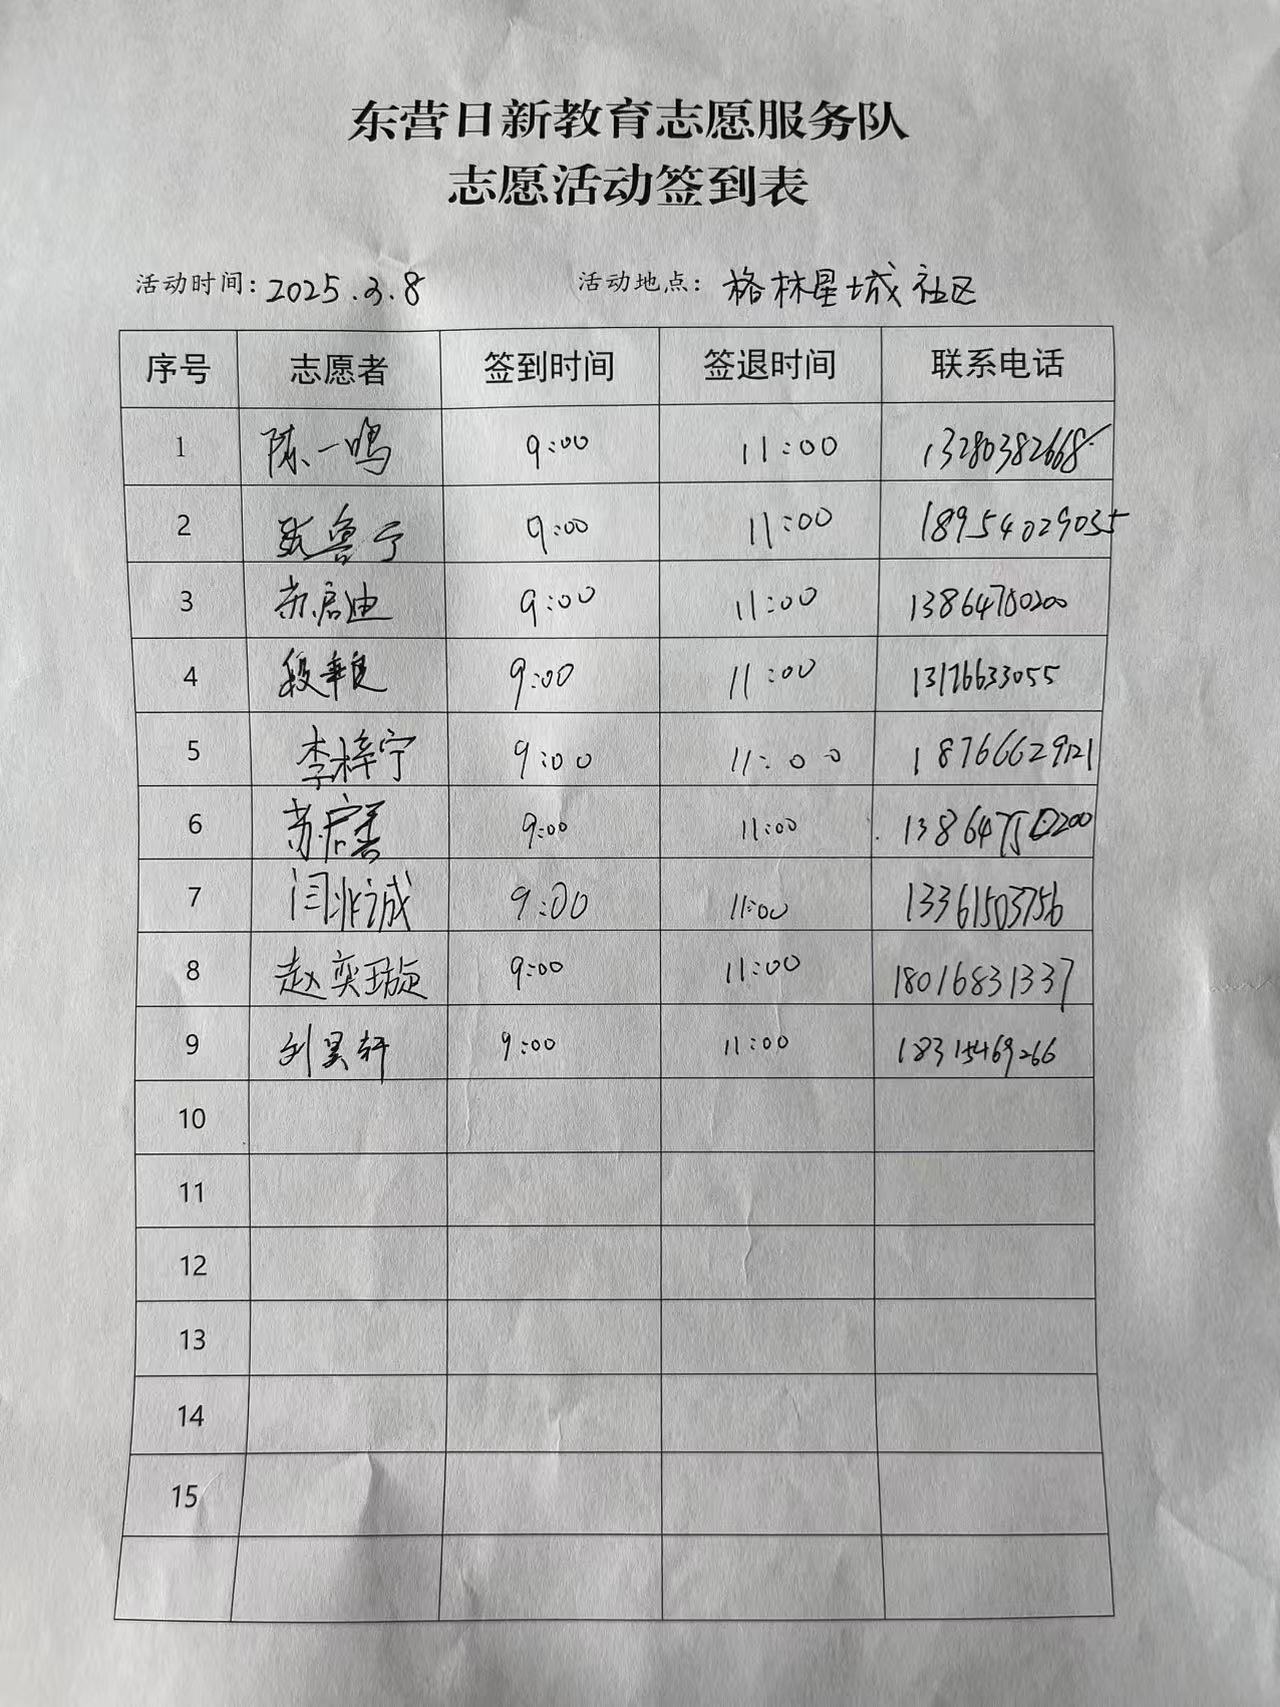 东营日新教育志愿服务队
志愿活动签到表
活动时间: 2025.3.8 活动地点: 格林星城社区
序号 志愿者 签到时间 签退时间 联系电话
1 陈一鸣 9:00 11:00 13280382668
2 鲁宁 9:00 11:00 18954029035
3 苏启迪 9:00 11:00 13864750200
4 段 9:00 11:00 13176633055
5 李梓宁 9:00 11:00 18766629121
6 苏启善 9:00 11:00 13864750200
7 闫兆诚 9:00 11:00 13361503756
8 赵奕璇 9:00 11:00 18016831337
9 刘昊轩 9:00 11:00 18315469266
10
11
12
13
14
15